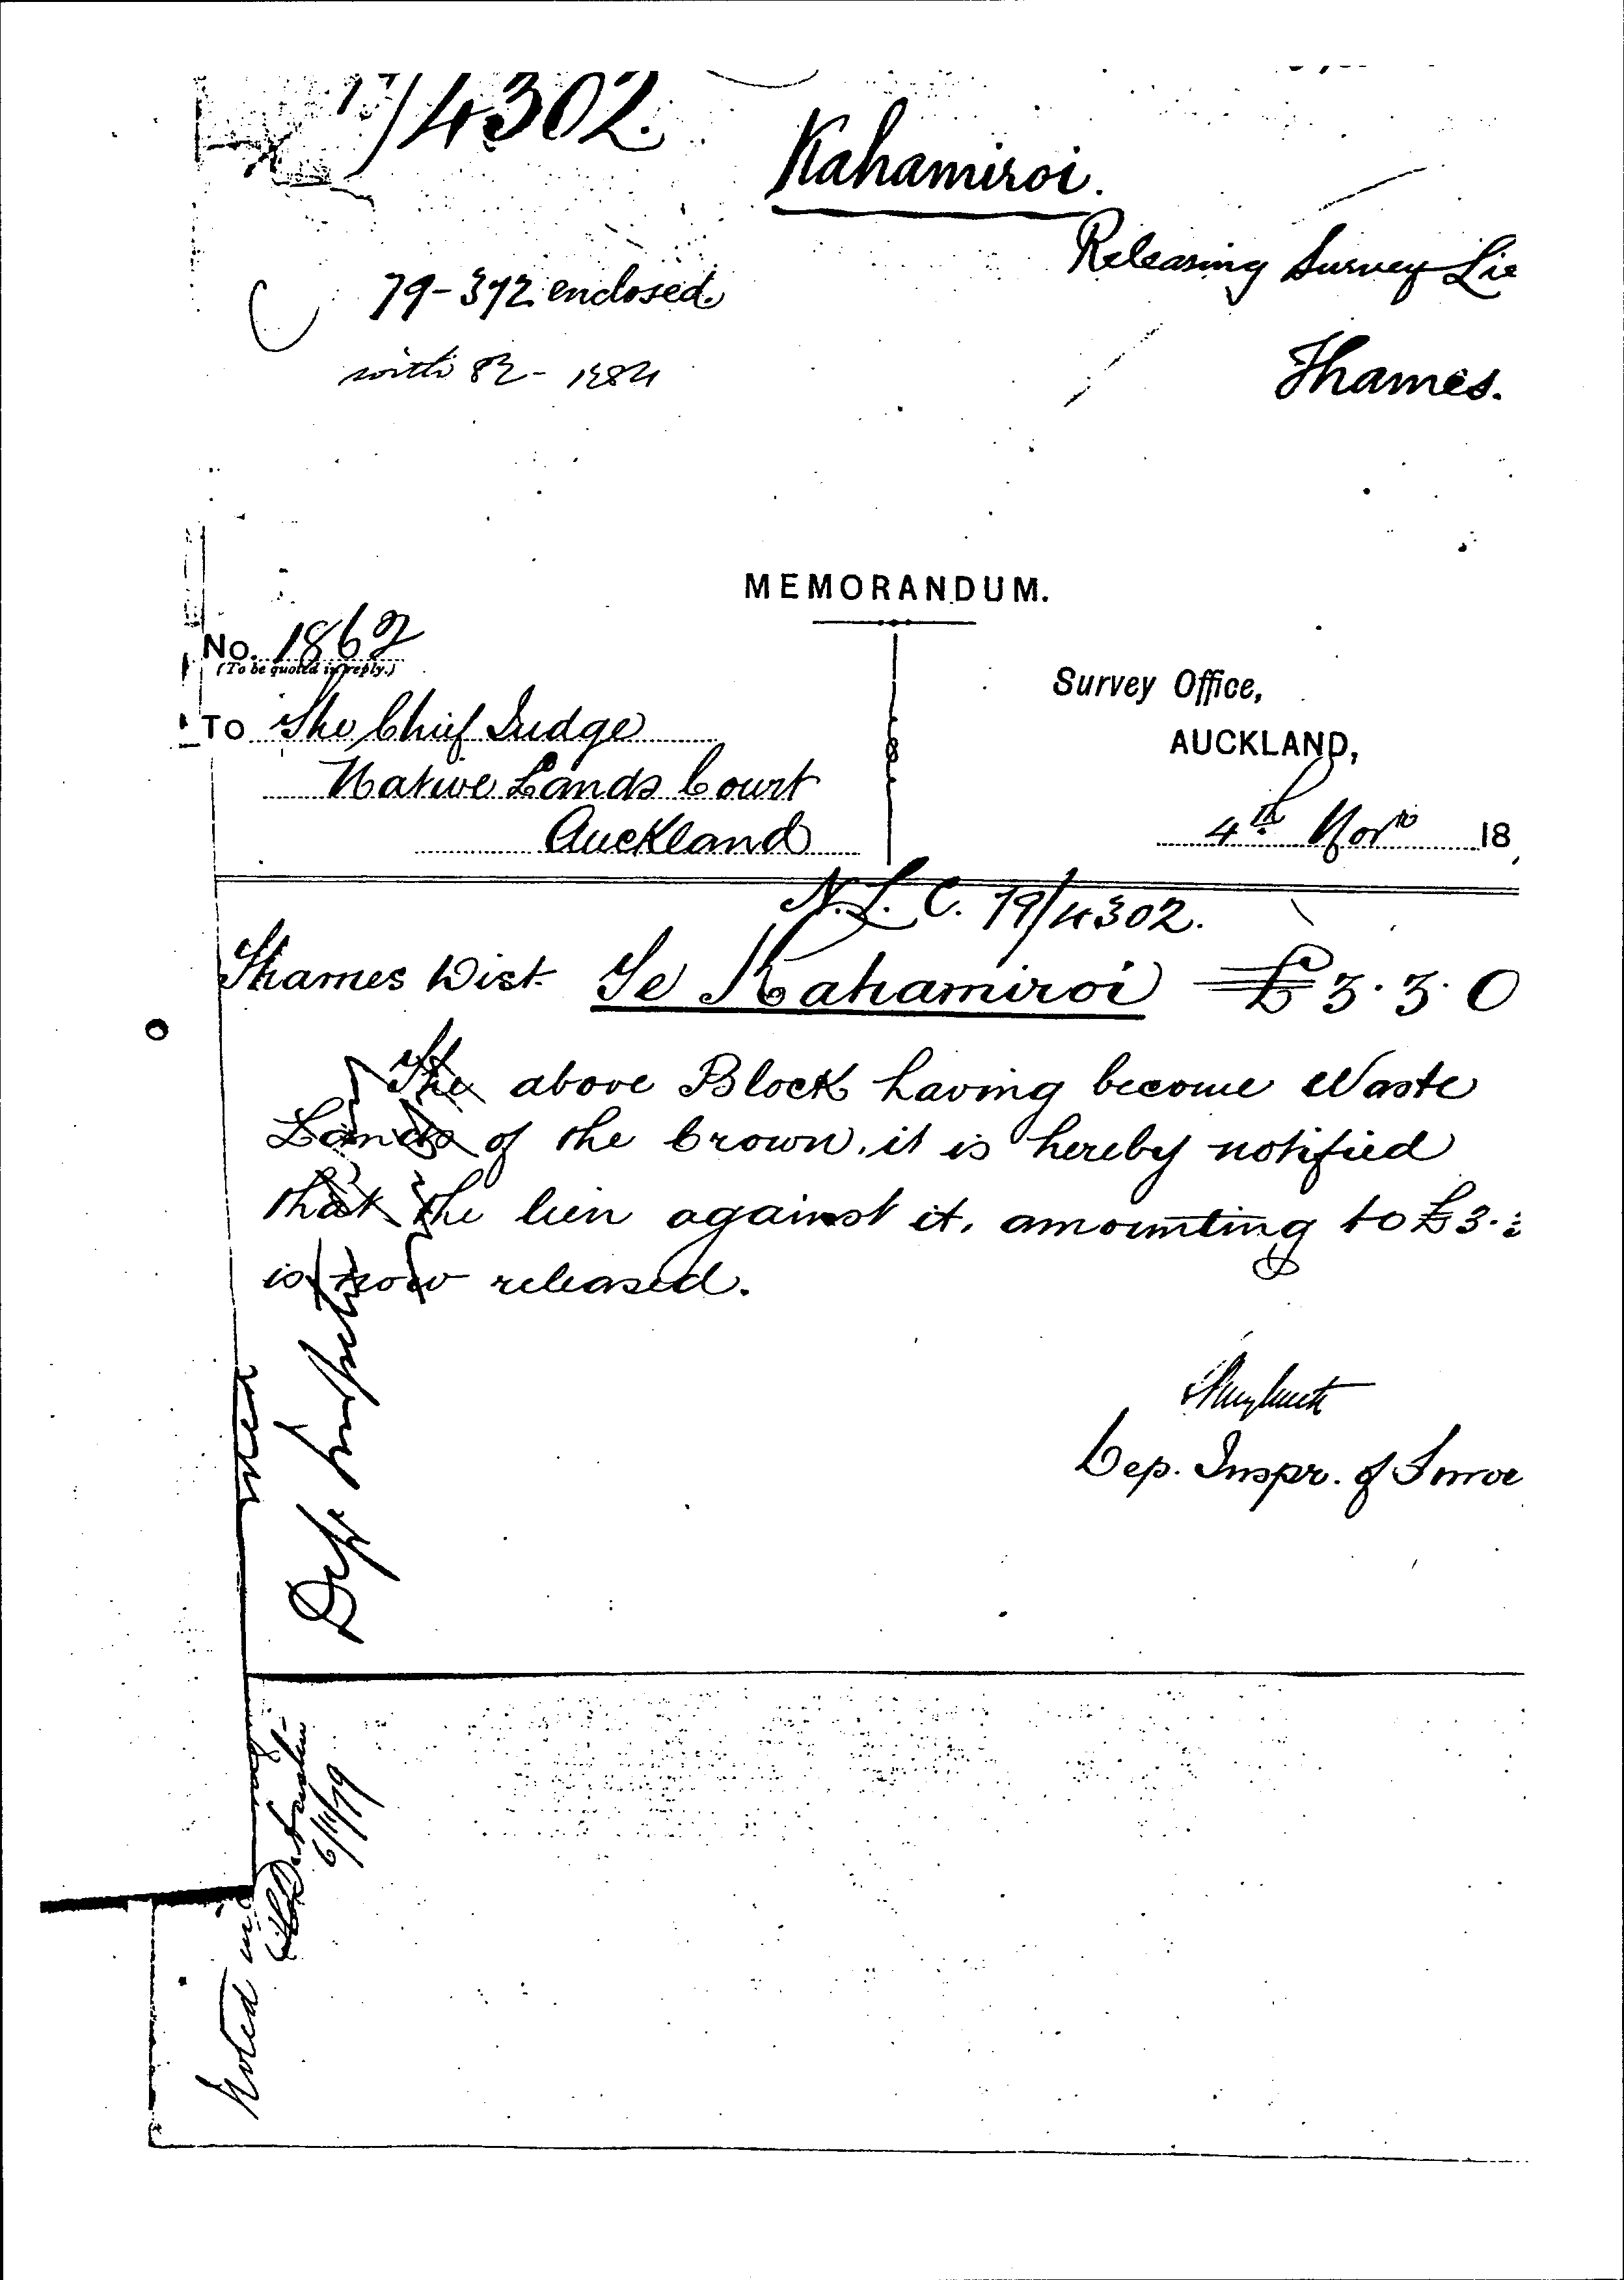 /4302.
Kahamiroi.
Releasing Survey Lie
79-372 enclosed.
with 82-1884
Thames.
MEMORANDUM.
No. 1862
(To be quoted in reply.)
Survey Office,
To The Chief Judge
AUCKLAND,
Native Lands Court
Auckland
4th Novr 18
N.L.C. 79/4302.
Thames Dist. Te Kahamiroi £3.3.0
The above Block having become Waste
Lands of the Crown, it is hereby notified
that the lien against it, amounting to £3.
is now released.
Dep. Inspr. of Surve
Noted in
6/11/79